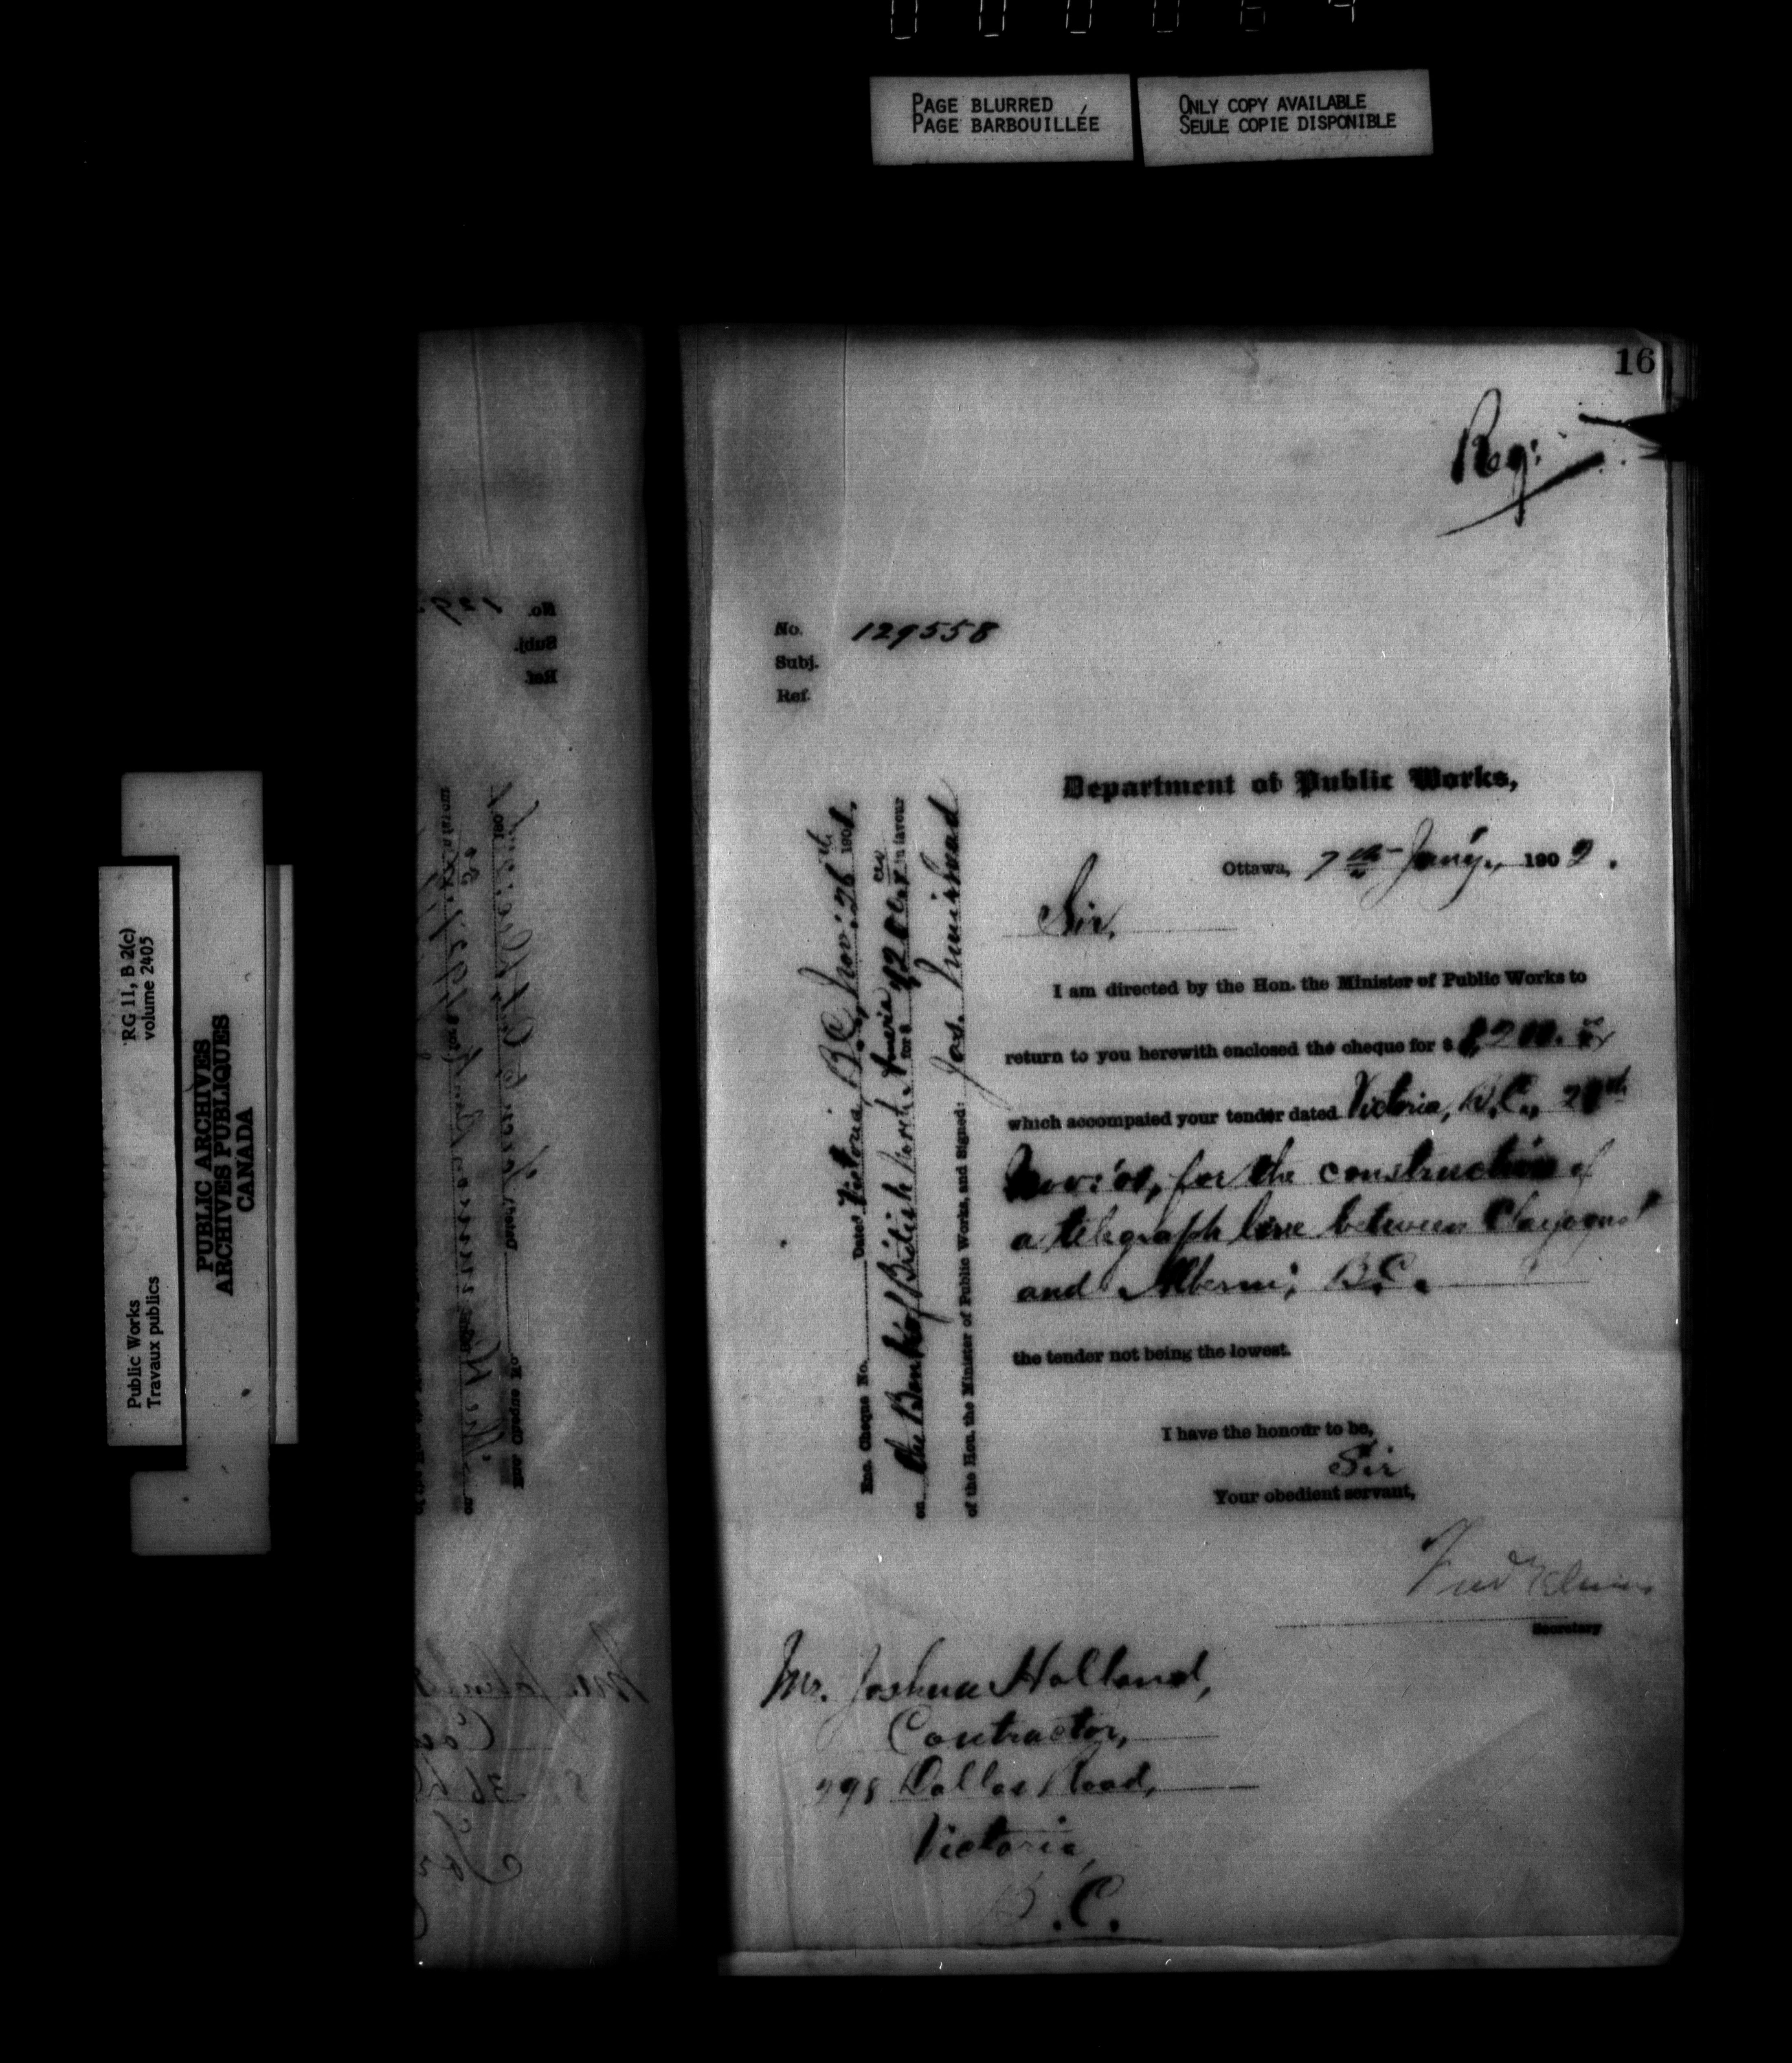 PAGE BLURRED
PAGE BARBOUILLÉE
ONLY COPY AVAILABLE
SEULE COPIE DISPONIBLE
RG 11, B 2(c)
volume 2405
Public Works
Travaux publics
PUBLIC ARCHIVES
ARCHIVES PUBLIQUES
CANADA
16
Reg:
No. 129558
Subj.
Ref.
Department of Public Works,
Ottawa, 7th Jany., 1902.
Sir,
I am directed by the Hon. the Minister of Public Works to
return to you herewith enclosed the cheque for $ 200.
which accompaied your tender dated Victoria, B.C.,
Nov: '01, for the construction of
a telegraph line between Clayoquot
and Alberni, B.C.
the tender not being the lowest.
I have the honour to be,
Sir
Your obedient servant,
Secretary
Enc. Cheque No. Dated Victoria, B.C., Nov: 26th 1901.
on the Bank of British North America for $ in favour
of the Hon. the Minister of Public Works, and Signed: Jos.
Mr. Joshua Holland,
Contractor,
298 Dallas Road,
Victoria,
B.C.